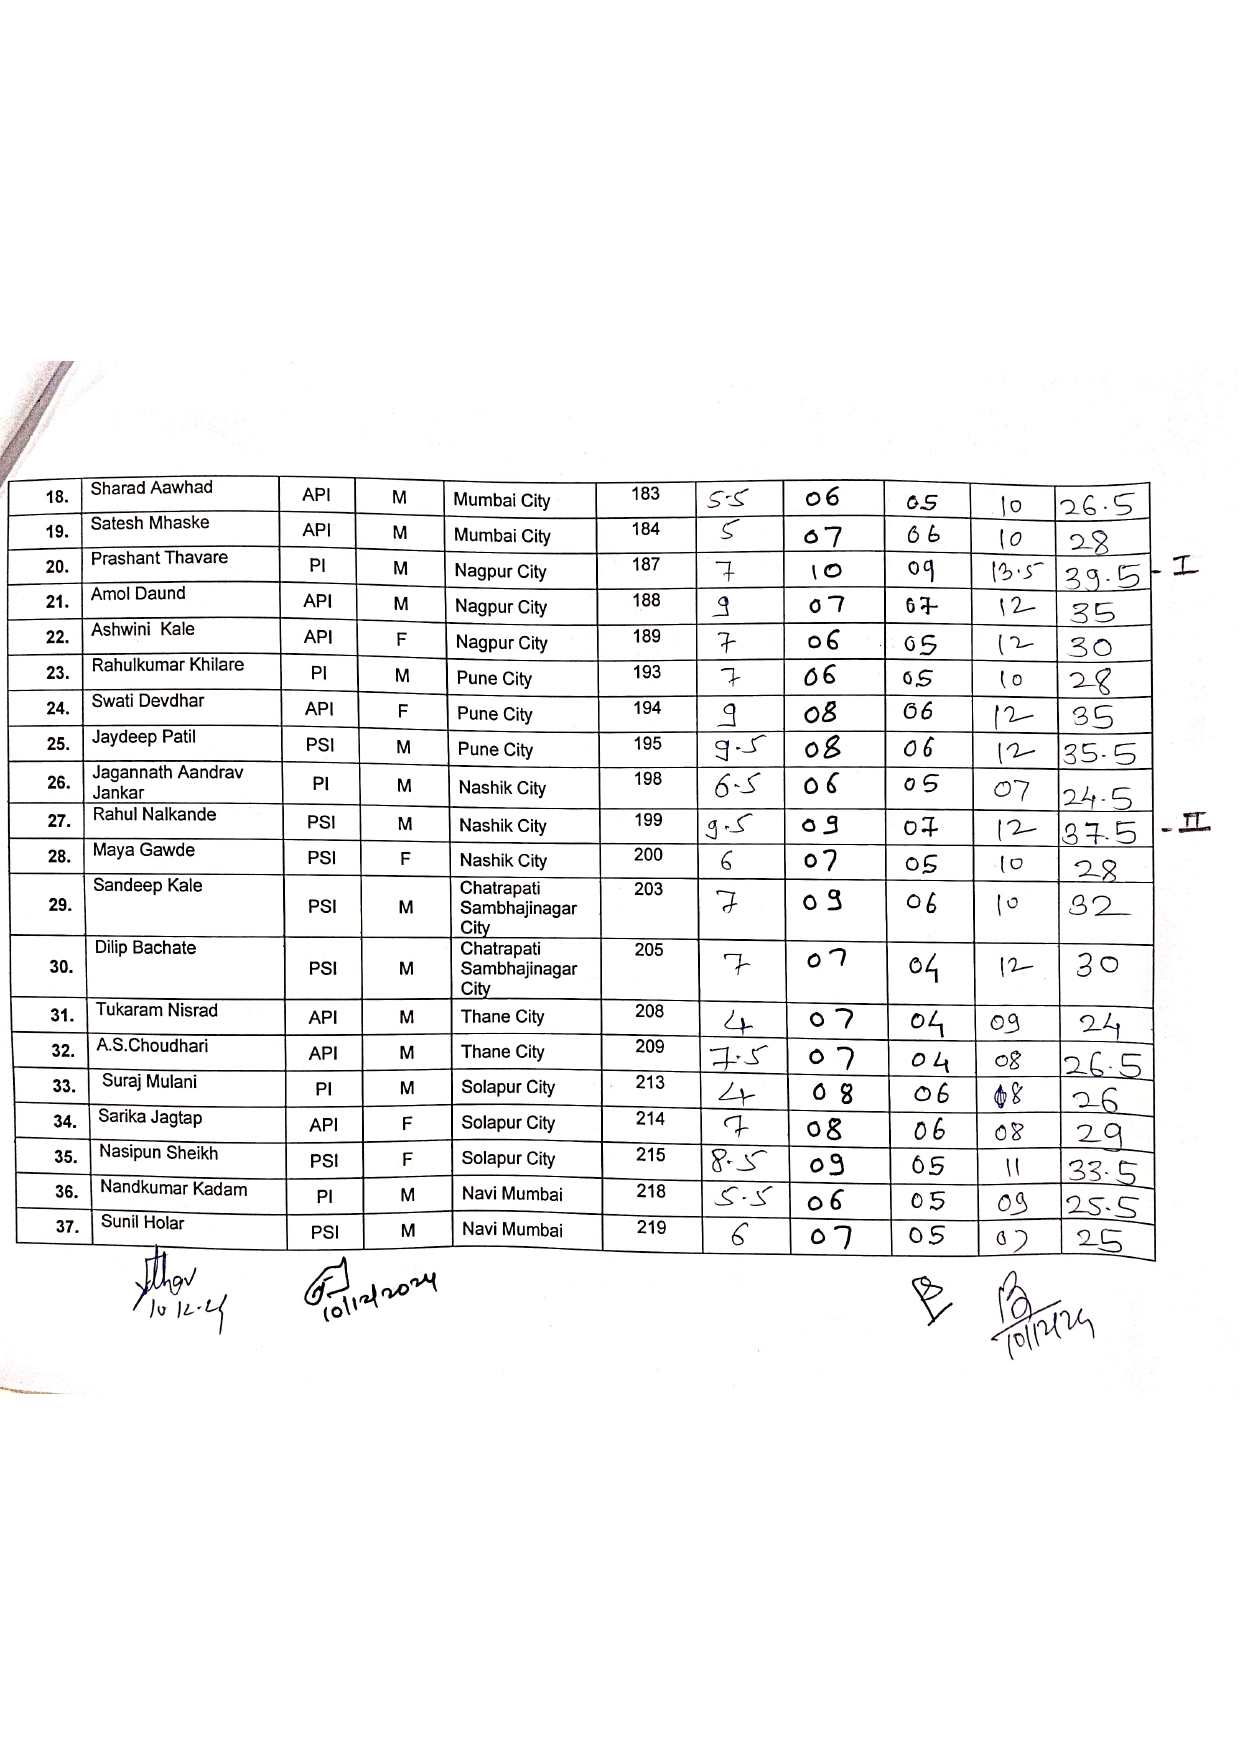 18. Sharad Aawhad API M Mumbai City 183 5.5 06 05 10 26.5
19. Satesh Mhaske API M Mumbai City 184 5 07 06 10 28
20. Prashant Thavare PI M Nagpur City 187 7 10 09 13.5 39.5 - I
21. Amol Daund API M Nagpur City 188 9 07 07 12 35
22. Ashwini Kale API F Nagpur City 189 7 06 05 12 30
23. Rahulkumar Khilare PI M Pune City 193 7 06 05 10 28
24. Swati Devdhar API F Pune City 194 9 08 06 12 35
25. Jaydeep Patil PSI M Pune City 195 9.5 08 06 12 35.5
26. Jagannath Aandrav
Jankar PI M Nashik City 198 6.5 06 05 07 24.5
27. Rahul Nalkande PSI M Nashik City 199 9.5 09 07 12 37.5 - II
28. Maya Gawde PSI F Nashik City 200 6 07 05 10 28
29. Sandeep Kale PSI M Chatrapati
Sambhajinagar
City 203 7 09 06 10 32
30. Dilip Bachate PSI M Chatrapati
Sambhajinagar
City 205 7 07 04 12 30
31. Tukaram Nisrad API M Thane City 208 4 07 04 09 24
32. A.S.Choudhari API M Thane City 209 7.5 07 04 08 26.5
33. Suraj Mulani PI M Solapur City 213 4 08 06 08 26
34. Sarika Jagtap API F Solapur City 214 7 08 06 08 29
35. Nasipun Sheikh PSI F Solapur City 215 8.5 09 05 11 33.5
36. Nandkumar Kadam PI M Navi Mumbai 218 5.5 06 05 09 25.5
37. Sunil Holar PSI M Navi Mumbai 219 6 07 05 07 25
10.12.24 10/12/2024 10/12/24